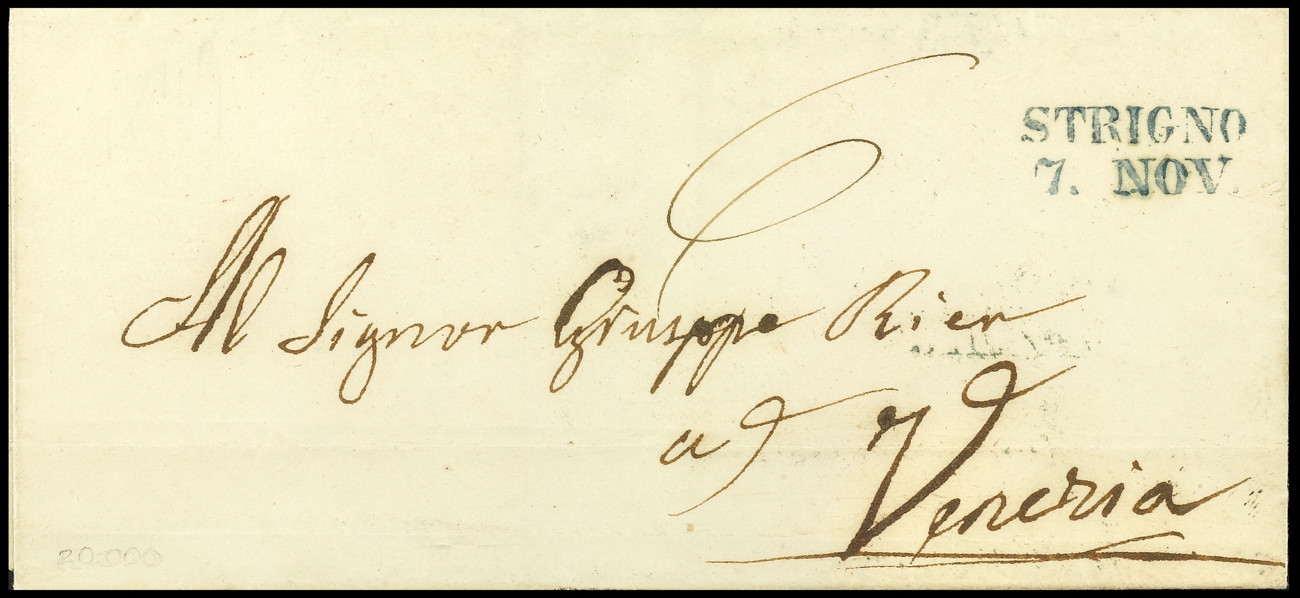 STRIGNO
7. NOV.
Al Signor Giuseppe Rier
a
Venezia
20.000